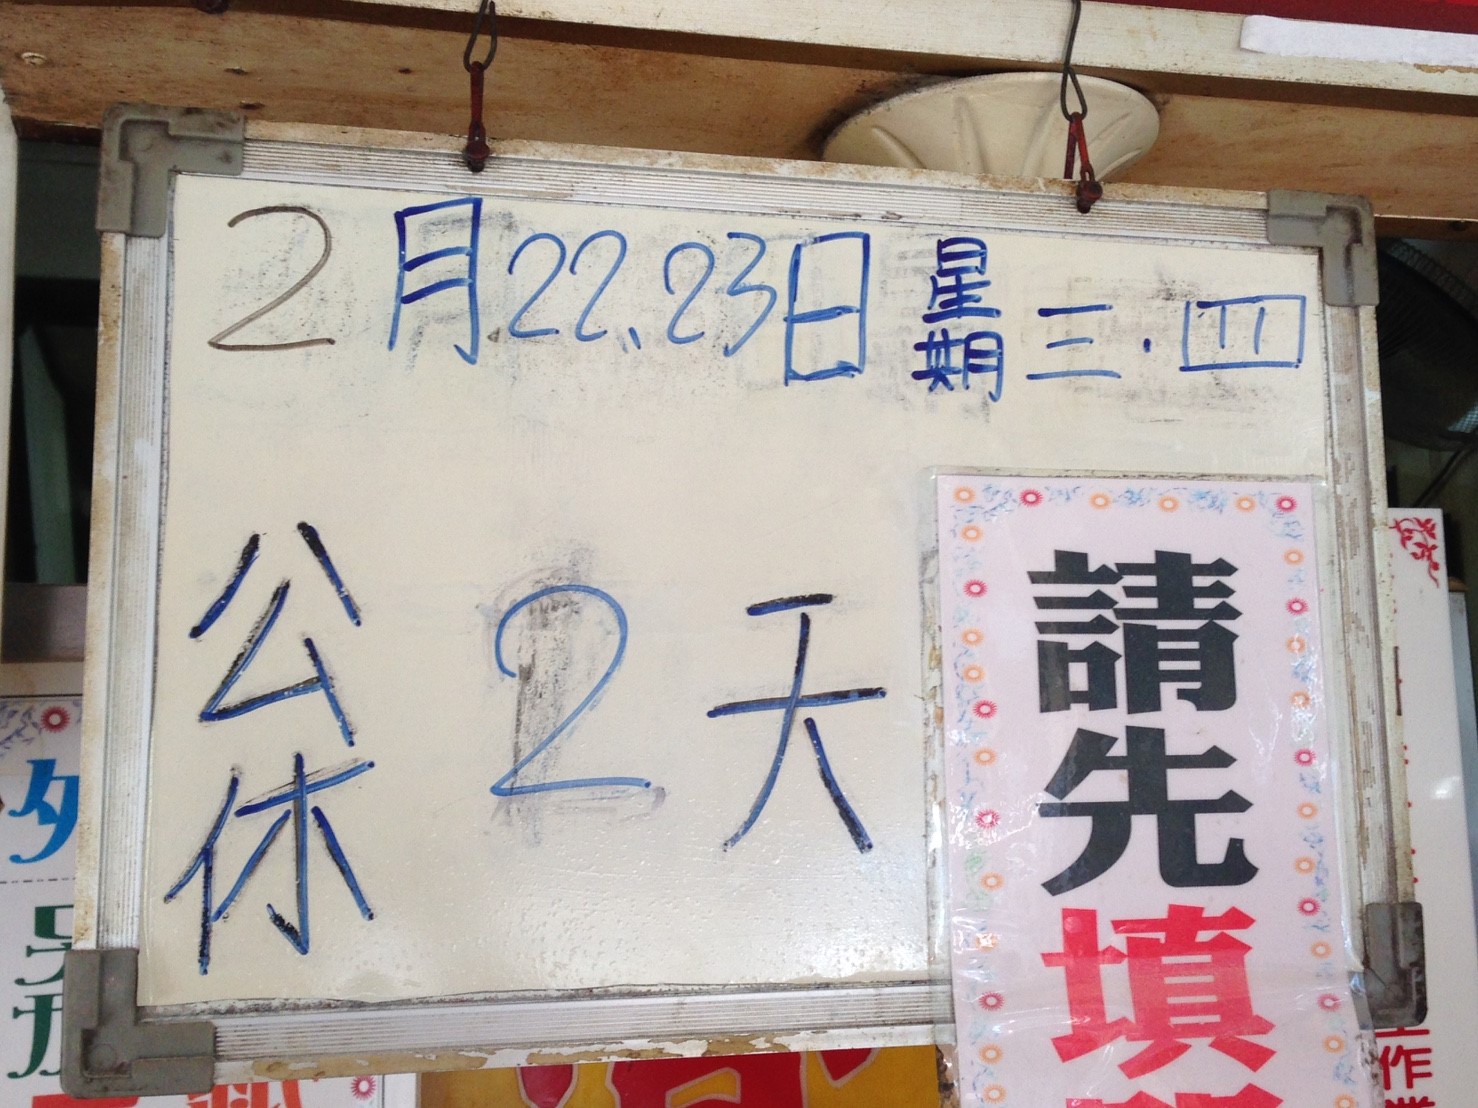 2月22、23日 星期三.四
公休 2 天
請先填
外
作業